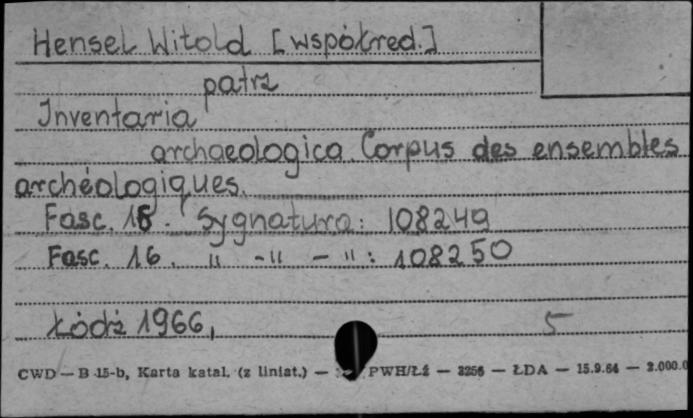 Hensel Witold [współred.]
patrz
Inventaria
archaeologica. Corpus des ensembles
archéologiques.
Fasc. 15. Sygnatura: 108249
Fasc. 16. " -" - ": 108250
Łódź 1966, 5
CWD — B 15-b, Karta katal. (z liniat.) — PWH/Łź — 3256 — ŁDA — 15.9.64 — 2.000.0